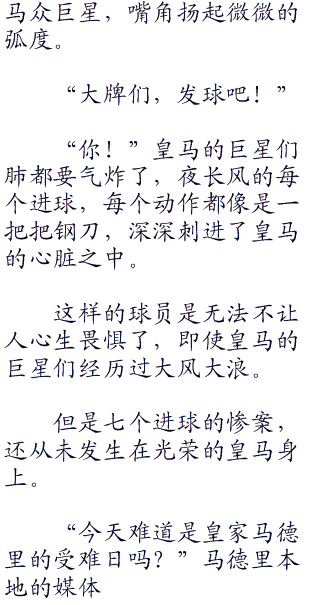 马众巨星，嘴角扬起微微的
弧度。
“大牌们，发球吧！”
“你！”皇马的巨星们
肺都要气炸了，夜长风的每
个进球，每个动作都像是一
把把钢刀，深深刺进了皇马
的心脏之中。
这样的球员是无法不让
人心生畏惧了，即使皇马的
巨星们经历过大风大浪。
但是七个进球的惨案，
还从未发生在光荣的皇马身
上。
“今天难道是皇家马德
里的受难日吗？”马德里本
地的媒体